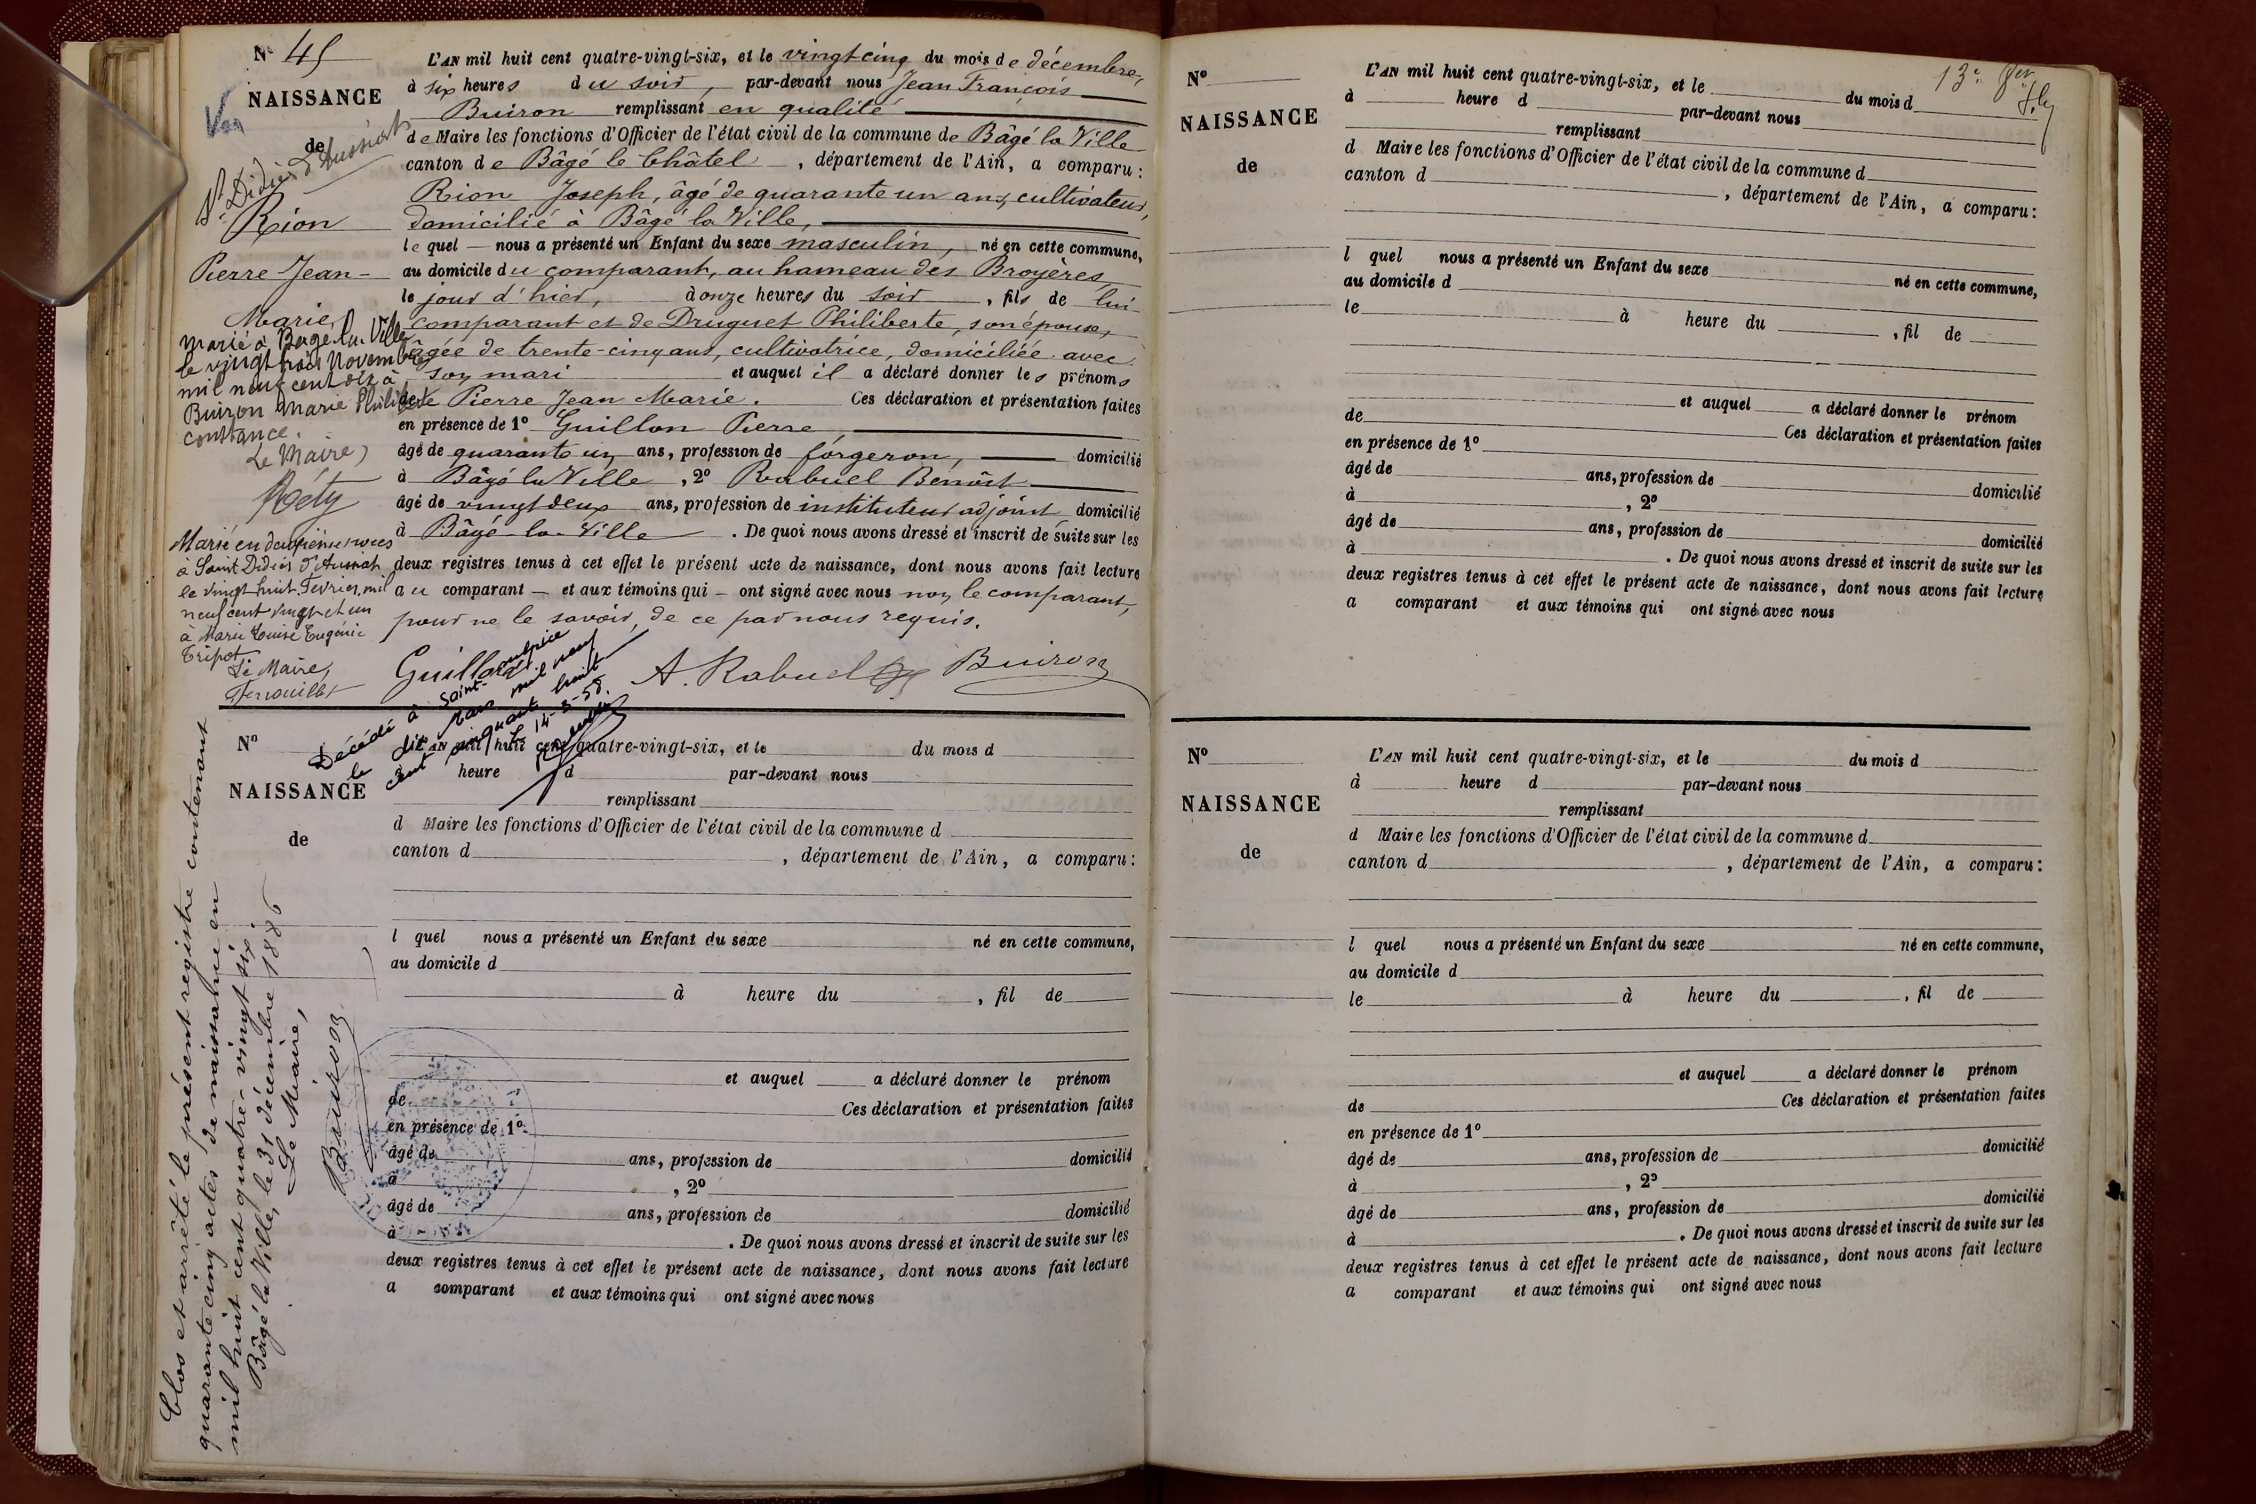 N° 45
NAISSANCE
de
St Didier d'Aussiat
Rion
Pierre Jean
Marie
L'AN mil huit cent quatre-vingt-six, et le vingt cinq du mois de décembre,
à six heures du soir, par-devant nous Jean François
Buiron remplissant en qualité
de Maire les fonctions d'Officier de l'état civil de la commune de Bâgé la Ville
canton de Bâgé le Châtel, département de l'Ain, a comparu :
Rion Joseph, âgé de quarante un ans, cultivateur,
domicilié à Bâgé la Ville,
lequel nous a présenté un Enfant du sexe masculin, né en cette commune,
au domicile du comparant, au hameau des Broyères,
le jour d'hier, à onze heures du soir, fils de lui
comparant et de Druguet Philiberte, son épouse,
âgée de trente-cinq ans, cultivatrice, domiciliée avec
son mari et auquel il a déclaré donner les prénoms
de Pierre Jean Marie. Ces déclaration et présentation faites
en présence de 1° Guillon Pierre,
âgé de quarante un ans, profession de forgeron, domicilié
à Bâgé la Ville, 2° Rabuel Benoît
âgé de vingt deux ans, profession de instituteur adjoint domicilié
à Bâgé-la-Ville. De quoi nous avons dressé et inscrit de suite sur les
deux registres tenus à cet effet le présent acte de naissance, dont nous avons fait lecture
au comparant et aux témoins qui ont signé avec nous non le comparant,
pour ne le savoir, de ce par nous requis.
Guillon A. Rabuel Buiron
marié à Bâgé-la-Ville
le vingt trois Novembre
mil neuf cent dix à
Buiron Marie Philiberte
Constance.
Le Maire,
Réty
Marié en deuxième noces
à Saint Didier d'Aussiat
le vingt huit Fevrier mil
neuf cent vingt et un
à Marie Louise Eugénie
Tripot
Le Maire,
Décédé à Saint-Sulpice
le dix Mars mil neuf
cent cinquante huit
Le 14-3-58.
N°
NAISSANCE
de
L'AN mil huit cent quatre-vingt-six, et le du mois d
heure d par-devant nous
remplissant
d Maire les fonctions d'Officier de l'état civil de la commune d
canton d , département de l'Ain, a comparu :
l quel nous a présenté un Enfant du sexe né en cette commune,
au domicile d
à heure du , fil de
et auquel a déclaré donner le prénom
de Ces déclaration et présentation faites
en présence de 1°
âgé de ans, profession de domicilié
à , 2°
âgé de ans, profession de domicilié
à . De quoi nous avons dressé et inscrit de suite sur les
deux registres tenus à cet effet le présent acte de naissance, dont nous avons fait lecture
a comparant et aux témoins qui ont signé avec nous
Clos et arrêté le présent registre contenant
quarante cinq actes de naissance en
mil huit cent quatre-vingt six.
Bâgé la Ville, le 31 décembre 1886
Le Maire,
Buiron
13e
N°
NAISSANCE
de
L'AN mil huit cent quatre-vingt-six, et le du mois d
à heure d par-devant nous
remplissant
d Maire les fonctions d'Officier de l'état civil de la commune d
canton d , département de l'Ain, a comparu :
l quel nous a présenté un Enfant du sexe
au domicile d né en cette commune,
le à heure du , fil de
et auquel a déclaré donner le prénom
de Ces déclaration et présentation faites
en présence de 1°
âgé de ans, profession de domicilié
à , 2°
âgé de ans, profession de domicilié
à . De quoi nous avons dressé et inscrit de suite sur les
deux registres tenus à cet effet le présent acte de naissance, dont nous avons fait lecture
a comparant et aux témoins qui ont signé avec nous
N°
NAISSANCE
de
L'AN mil huit cent quatre-vingt-six, et le du mois d
à heure d par-devant nous
remplissant
d Maire les fonctions d'Officier de l'état civil de la commune d
canton d , département de l'Ain, a comparu :
l quel nous a présenté un Enfant du sexe né en cette commune,
au domicile d
le à heure du , fil de
et auquel a déclaré donner le prénom
de Ces déclaration et présentation faites
en présence de 1°
âgé de ans, profession de domicilié
à , 2°
âgé de ans, profession de domicilié
à . De quoi nous avons dressé et inscrit de suite sur les
deux registres tenus à cet effet le présent acte de naissance, dont nous avons fait lecture
a comparant et aux témoins qui ont signé avec nous